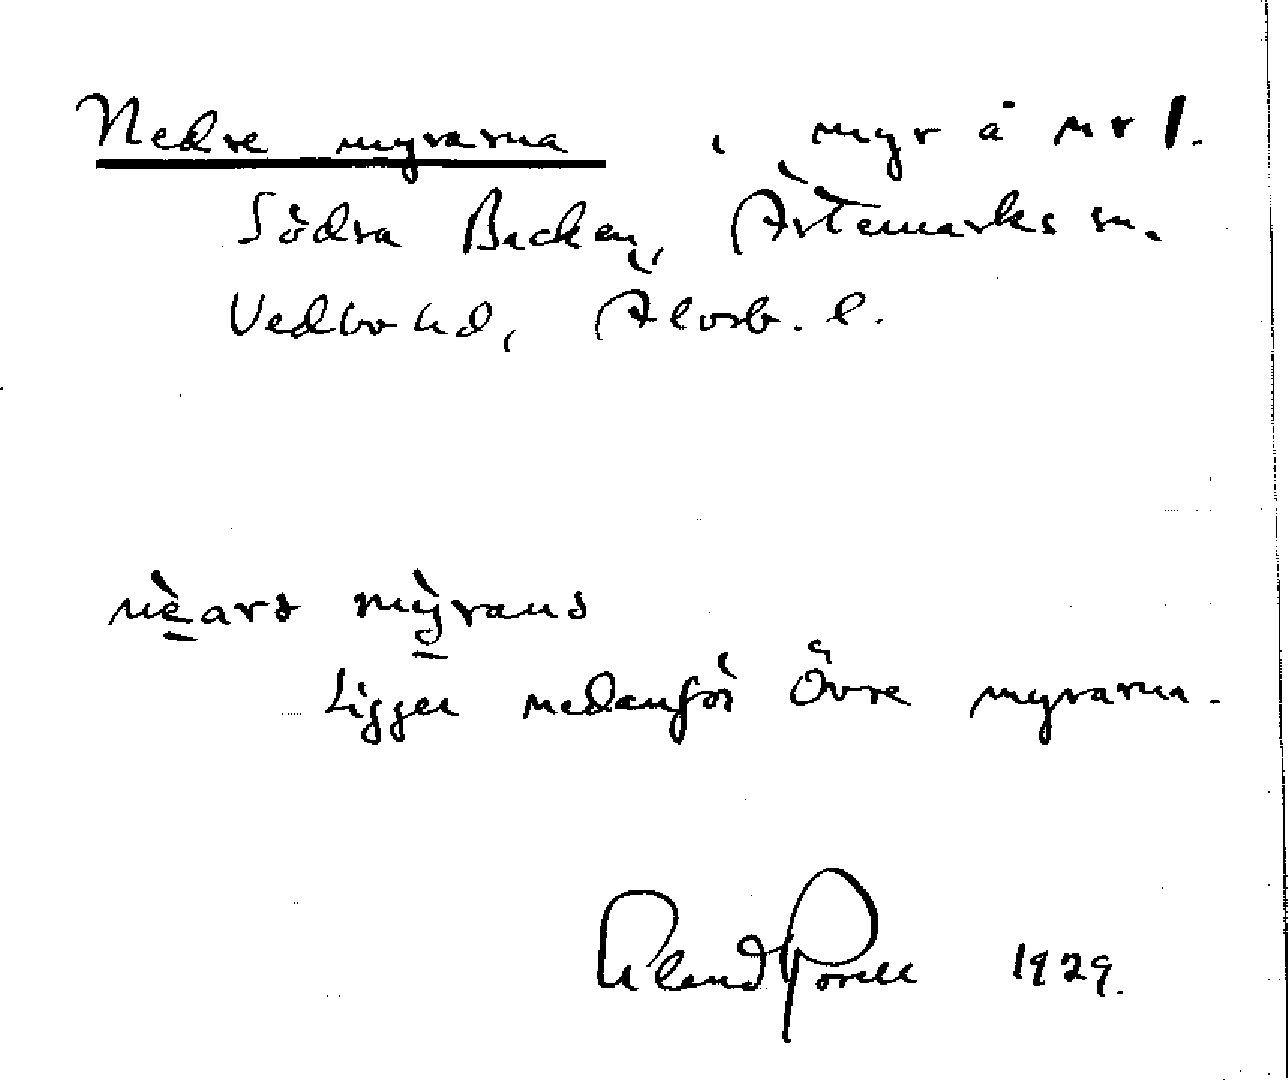 Nedre myrarna, myr å nr 1.
Södra Backen, Ärtemarks sn.
Vedbo hd, Älvsb. l.
nèarə mỳranə
Ligger nedanför Övre myrarna.
Erland 1929.